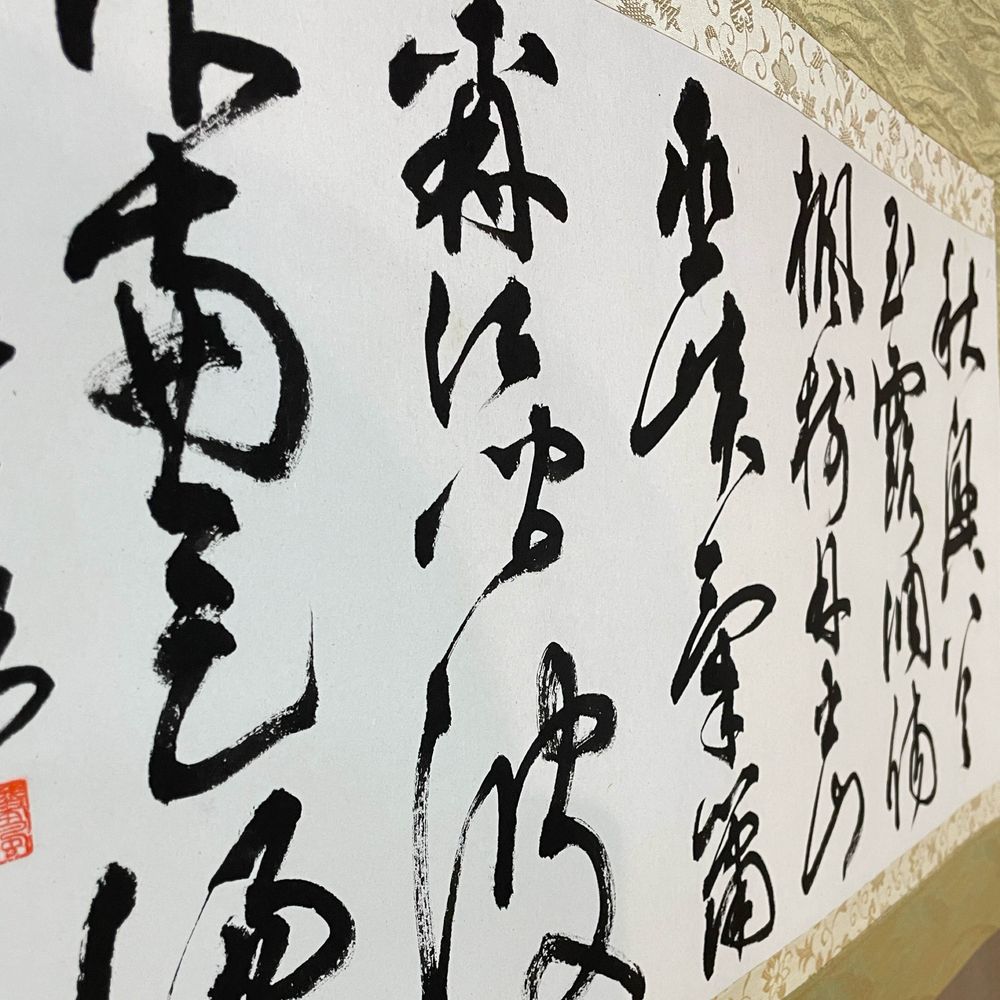 秋興八首
玉露凋傷
楓樹林巫山
巫峽氣蕭
森江間波
浪兼天湧